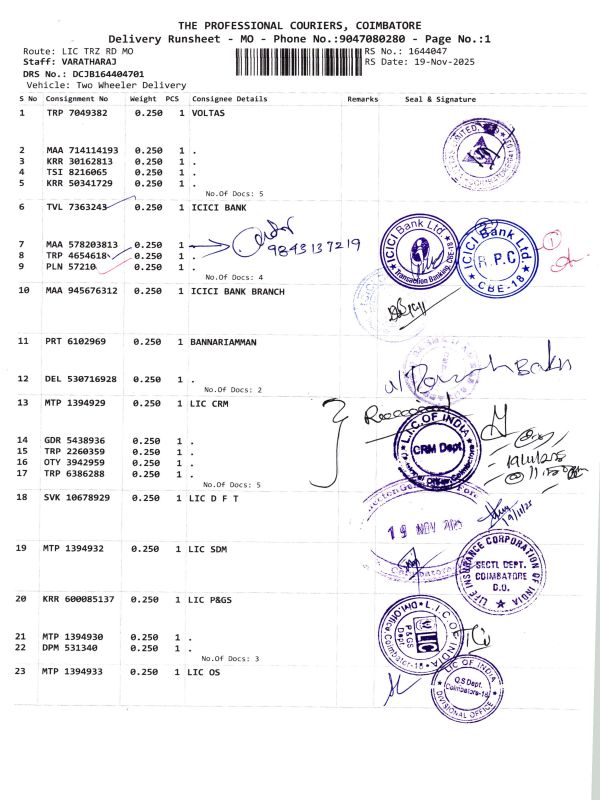 THE PROFESSIONAL COURIERS, COIMBATORE
Delivery Runsheet - MO - Phone No.:9047080280 - Page No.:1
Route: LIC TRZ RD MO
RS No.: 1644047
Staff: VARATHARAJ
RS Date: 19-Nov-2025
DRS No.: DCJB164404701
Vehicle: Two Wheeler Delivery
S No Consignment No Weight PCS Consignee Details Remarks Seal & Signature
1 TRP 7049382 0.250 1 VOLTAS
2 MAA 714114193 0.250 1 .
3 KRR 30162813 0.250 1 .
4 TSI 8216065 0.250 1 .
5 KRR 50341729 0.250 1 .
No.Of Docs: 5
6 TVL 7363243 0.250 1 ICICI BANK
7 MAA 578203813 0.250 1 .
9843137219
8 TRP 4654618 0.250 1 .
9 PLN 57210 0.250 1 .
No.Of Docs: 4
ICICI Bank Ltd.
Transaction Banking, CBE-18
ICICI Bank Ltd.
R.P.C
CBE-18
1
10 MAA 945676312 0.250 1 ICICI BANK BRANCH
11 PRT 6102969 0.250 1 BANNARIAMMAN
12 DEL 530716928 0.250 1 .
No.Of Docs: 2
13 MTP 1394929 0.250 1 LIC CRM
14 GDR 5438936 0.250 1 .
15 TRP 2260359 0.250 1 .
16 OTY 3942959 0.250 1 .
17 TRP 6386288 0.250 1 .
No.Of Docs: 5
L.I.C. OF INDIA
CRM Dept
18 SVK 10678929 0.250 1 LIC D F T
19 NOV 2025
19/11/25
19 MTP 1394932 0.250 1 LIC SDM
LIFE INSURANCE CORPORATION OF INDIA
SECTL DEPT.
COIMBATORE
D.O.
20 KRR 600085137 0.250 1 LIC P&GS
21 MTP 1394930 0.250 1 .
22 DPM 531340 0.250 1 .
No.Of Docs: 3
L.I.C. OF INDIA
P&GS
Dept
LIC
23 MTP 1394933 0.250 1 LIC OS
LIC OF INDIA
O.S Dept.
Coimbatore-18
DIVISIONAL OFFICE